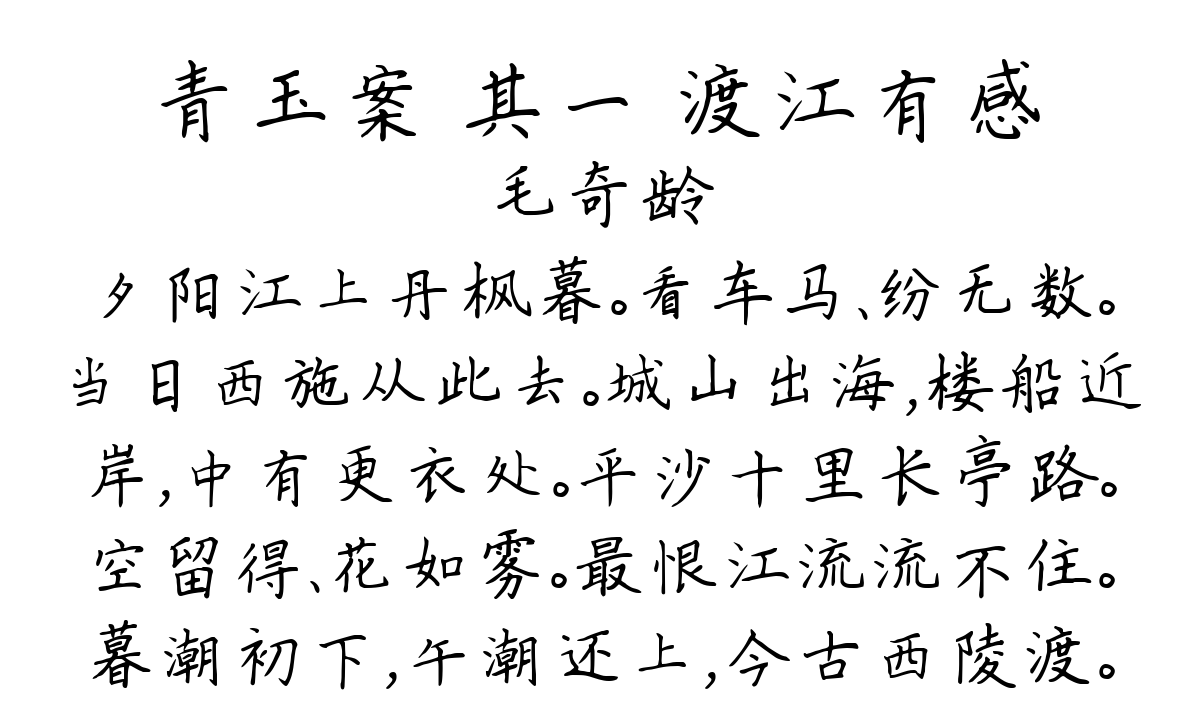 青玉案 其一 渡江有感
毛奇龄
夕阳江上丹枫暮。看车马、纷无数。
当日西施从此去。城山出海,楼船近
岸,中有更衣处。平沙十里长亭路。
空留得、花如雾。最恨江流流不住。
暮潮初下,午潮还上,今古西陵渡。